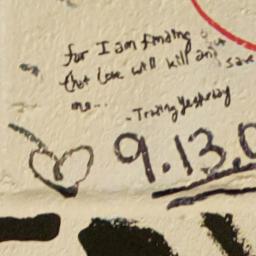 for I am finding out
that love will kill and save
me...
- Trading Yesterday
9.13.0